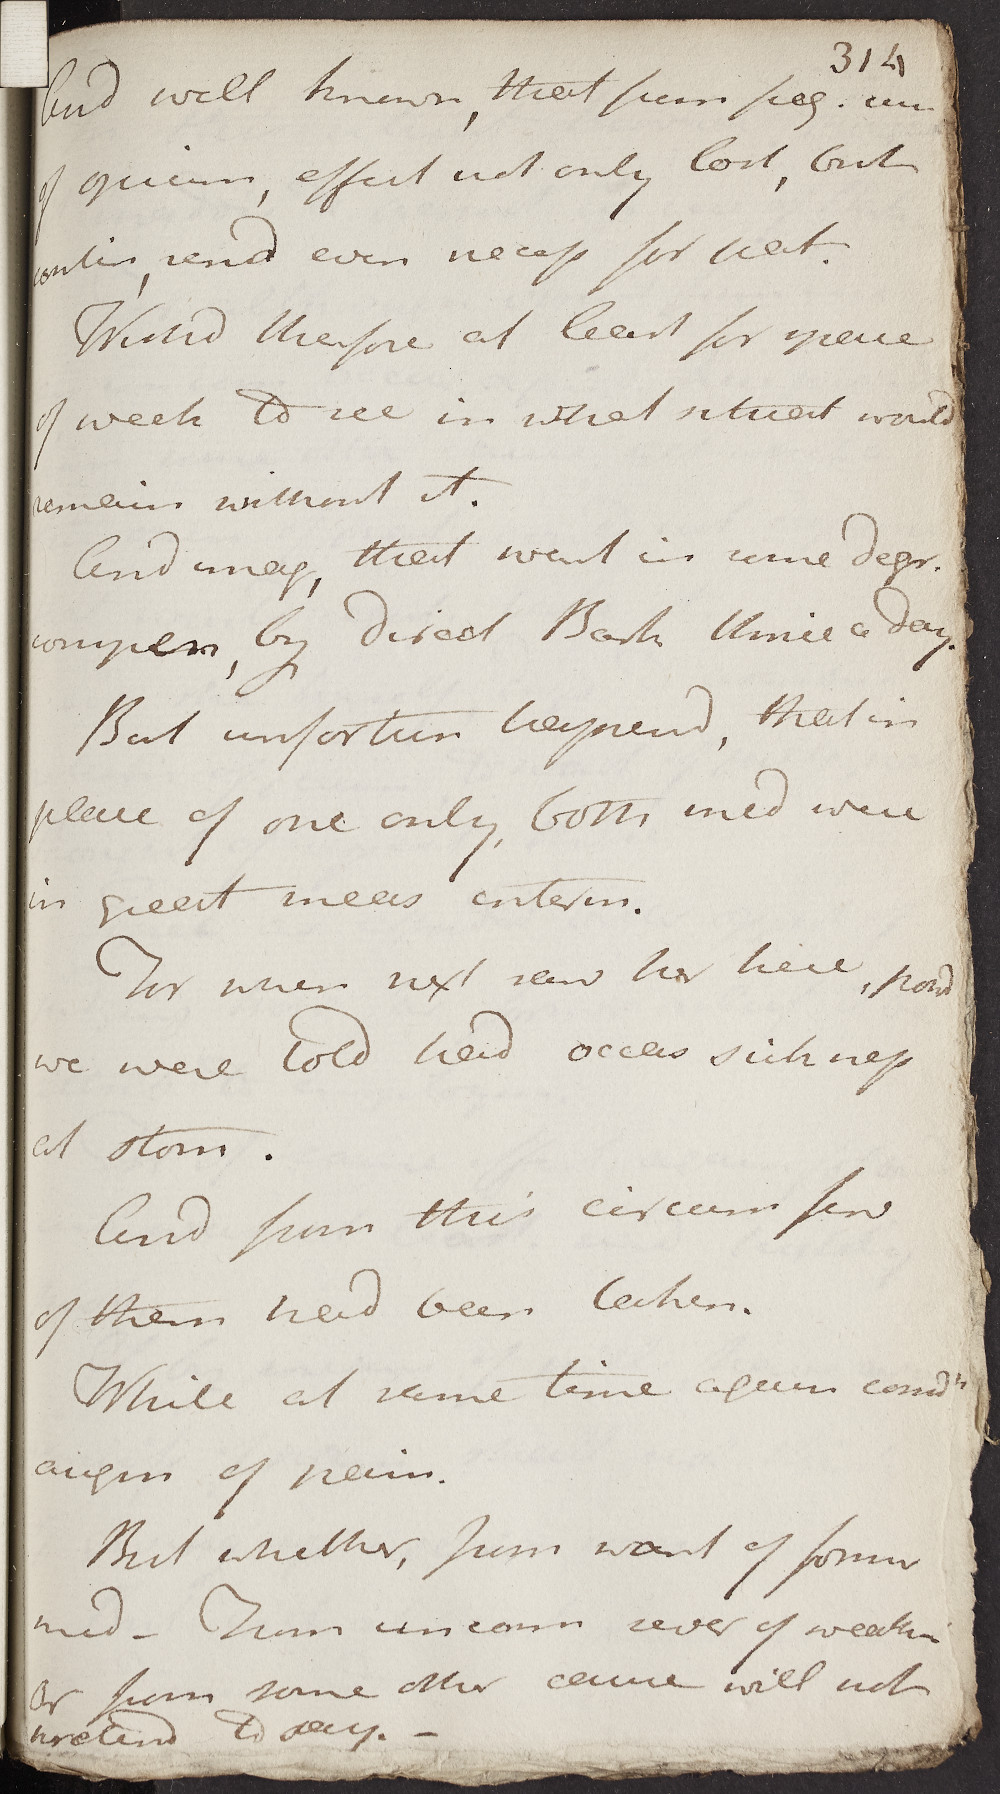 314
And well known, that from freq. use
of opium, effect not only lost, but
contin, rend even necess for pat.
Wishd therefore at least for space
of week to see in what situat would
remain without it.
And imag, that want in some degr.
compen, by direct Bark thrice a day.
But unfortun happend, that in
place of one only, both med were
in great meas interm.
For when next saw her here,
we were told had occas sickness
at stom.
And from this circum few
of them had been taken.
While at same time again
augm of pain.
But whether, from want of former
med - From uncom sever of weath
Or from some other cause will not
pretend to say. -